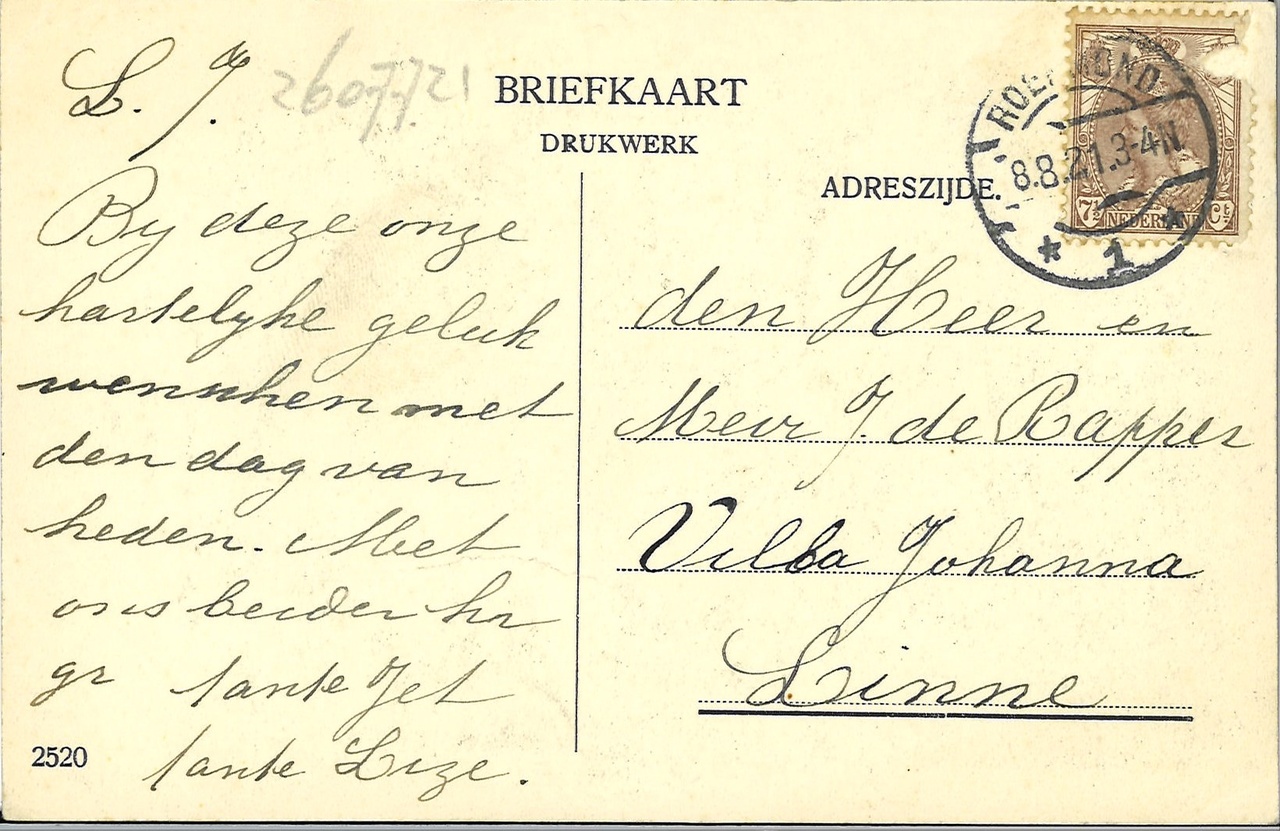 L. J.
BRIEFKAART
DRUKWERK
ADRESZIJDE.
ROERMOND
8.8.21.3-4N
* 1 *
7½ NEDERLAND Ct
By deze onze
hartelyke geluk
wenschen met
den dag van
heden. Met
ons beider hr
gr tante Jet
tante Lize.
2520
den Heer en
Mevr J. de Rapper
Villa Johanna
Linne